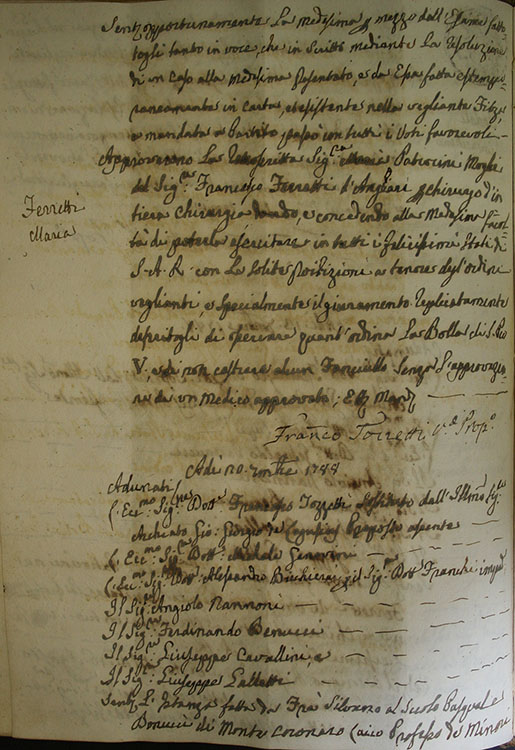 Sentì opportunamente La Medesima p mezzo dell'Esame fatto
togli tanto in voce, che in Scritti mediante La resoluzione
di un Caso alla Medesima presentato, e da Essa fatta estempo
raneamente in carta, et esistente nella vegliante Filza,
e mandata a Partito passò con tutti i Voti favorevoli
Approvarono La Sig.ra Maria Patrocini Moglie
del Sig.re Francesco Ferretti d'Anghiari p chirurgo d'in
Ferretti
Maria
tiera Chirurgia dando, e concedendo alla Medesima facol
tà di poterla esercitare in tutti i felicissimi Stati di
S. A. R. con Le Solite Proibizioni a tenore degl'ordini
veglianti, e specialmente il giuramento
deferitogli di osservare quant'ordina La Bolla di S. Pio
V, e di non castrare alcun Fanciullo Senza L'approvazio
ne di un Medico approvato; Et Mand
Franc.o Tozzetti Prop.o
Adì 20. 1788
Adunati
L'Ecc.mo Sig.re Dott.e Francesco Tozzetti dall'Illmo Sig.re
Archiatro Gio: Giorgio Proposto assente
L'Ecc.mo Sig.re Dott.e Michele
L'Ecc.mo Sig.re Dott.e Alessandro Bicchierai p il Sig.re Dott.e Franchi imp
Il Sig.re Angiolo Nannoni
Il Sig.re Ferdinando Benucci
Il Sig.re Giuseppe Cavallini, e
Il Sig.re Giuseppe Galletti
Sentì L'Istanza fatta da Fra Silverio al Secolo Pasquale
Bonucci di Monte Coronaro Laico Professo de Minori